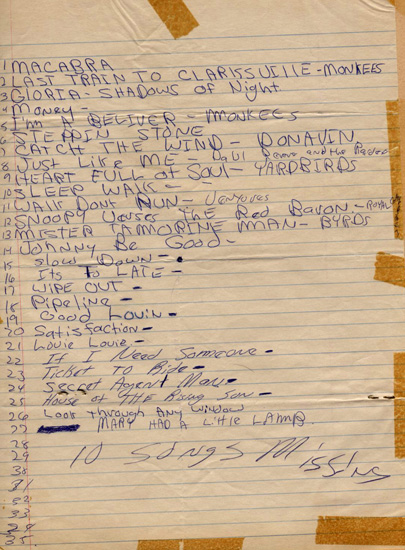 1 MACABRA
2 LAST TRAIN TO CLARISSVILLE - MONKEES
3 GLORIA - SHADOWS of Night
4 Money -
5 Imm A BELIVER - MONKEES
6 STEPPIN STONE
7 CATCH THE WIND - DONAVIN
8 Just Like ME - Paul Revere and the
9 HEART FULL of Soul - YARDBIRDS
10 SLEEP WALK -
11 WALK Dont RUN -
12 SNOOPY Verses The Red Baron - ROYAL
13 MISTER TAMORINE MAN - BYRDS
14 JOHNNY Be Good -
15 Slow Down -
16 Its To LATE -
17 WIPE OUT -
18 Pipeline -
19 Good Lovin -
20 Satisfaction -
21 Louie Louie -
22 If I Need Someone -
23 Ticket TO Ride -
24 Secret Agent Man -
25 House of THE Rising Son -
26 Look through Any Window
27 MARY HAD A Little LAMB
28
29 10 SONGS Missing
30
31
32
33
34
35